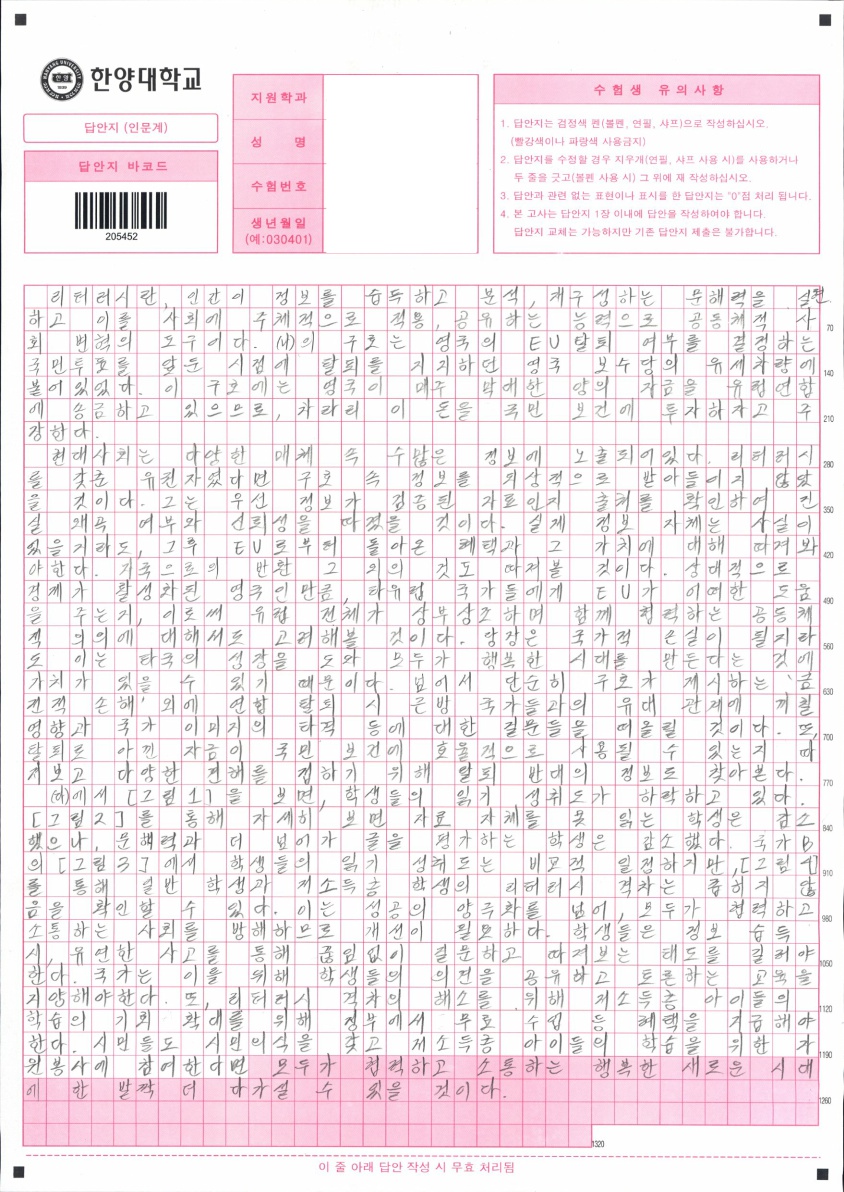 한양대학교
답안지 (인문계)
답안지 바코드
205452
지원학과
성 명
수험번호
생년월일
(예:030401)
수 험 생 유 의 사 항
1. 답안지는 검정색 펜(볼펜, 연필, 샤프)으로 작성하십시오.
(빨강색이나 파랑색 사용금지)
2. 답안지를 수정할 경우 지우개(연필, 샤프 사용 시)를 사용하거나
두 줄을 긋고(볼펜 사용 시) 그 위에 재 작성하십시오.
3. 답안과 관련 없는 표현이나 표시를 한 답안지는 "0"점 처리 됩니다.
4. 본 고사는 답안지 1장 이내에 답안을 작성하여야 합니다.
답안지 교체는 가능하지만 기존 답안지 제출은 불가합니다.
리터러시란, 인간이 정보를 습득하고 분석, 재구성하는 문해력을 실현
하고 이를 사회에 주체적으로 적용, 공유하는 능력으로 공동체적 사
70
회 변혁의 도구이다. (나)의 구호는 영국의 EU탈퇴 여부를 결정하는
국민투표를 앞둔 시점에 탈퇴를 지지하던 영국 보수당의 유세차량에
140
붙어 있었다. 이 구호에는 영국이 매주 막대한 양의 자금을 유럽연합
에 송금하고 있으므로, 차라리 이 돈을 국민 보건에 투자하자고 주
210
장한다.
현대사회는 다양한 매체 속 수많은 정보에 노출되어있다. 리터러시
280
를 갖춘 유권자였다면 구호 속 정보를 피상적으로 받아들이지 않았
을 것이다. 그는 우선 정보가 검증된 자료인지 출처를 확인하여 진
350
실 왜곡 여부와 신뢰성을 따졌을 것이다. 실제 정보 자체는 사실이
있을지라도, 그후 EU로부터 돌아온 혜택과 그 가치에 대해 따져봐
420
야한다. 자국으로의 반환 그 외의 것도 따져볼 것이다. 상대적으로
경제가 활성화된 영국인만큼, 타유럽 국가들에게 EU가 어떠한 도움
490
을 주는지, 이로써 유럽 전체가 상부상조하며 함께 협력하는 공동체
적 의의에 대해서도 고려해볼 것이다. 당장은 국가적 손실이 될지라
560
도 이는 타국의 성장을 도와 모두가 행복한 시대를 만든다는 것에
가치가 있을 수 있기 때문이다. 넘어서 단순히 구호가 제시하는 '금
630
전적 손해' 외에 연합 탈퇴 시 근방 국가들과의 유대 관계에 끼칠
영향과 국가 이미지의 타격 등에 대한 질문들을 떠올릴 것이다. 또,
700
탈퇴로 아낀 자금이 국민 보건에 효율적으로 사용될 수 있는지 따
져보고 다양한 견해를 접하기 위해 탈퇴 반대의 정보도 찾아본다.
770
(다)에서 [그림 1]을 보면, 학생들의 읽기 성취도가 하락하고 있다.
[그림 2]를 통해 자세히 보면 자료 자체를 못 읽는 학생은 감소
840
했으나, 문해력과 더 넘어가 글을 평가하는 학생은 감소했다. 국가 B
의 [그림 3]에서 학생들의 읽기 성취도는 비교적 일정하지만, [그림 4]
910
를 통해 일반 학생과 저소득층 학생의 리터러시 격차는 좁히지 않
음을 확인할 수 있다. 이는 성공의 양극화를 넘어, 모두가 협력하고
980
소통하는 사회를 방해하므로 개선이 필요하다. 학생들은 정보 습득
시, 유연한 사고를 통해 끊임없이 질문하고 따져보는 태도를 길러야
1050
한다. 국가는 이를 위해 학생들의 의견을 공유하고 토론하는 교육을
지향해야한다. 또, 리터러시 격차의 해소를 위해 저소득층 아이들의
1120
학습의 기회 확대를 위해 정부에서 무료 수업 등 혜택을 지급해야
한다. 시민들도 시민의식을 갖고 저소득층 아이들의 학습을 위한 자
1190
원봉사에 참여한다면 모두가 협력하고 소통하는 행복한 새로운 시대
에 한 발짝 더 다가설 수 있을 것이다.
1260
1320
이 줄 아래 답안 작성 시 무효 처리됨